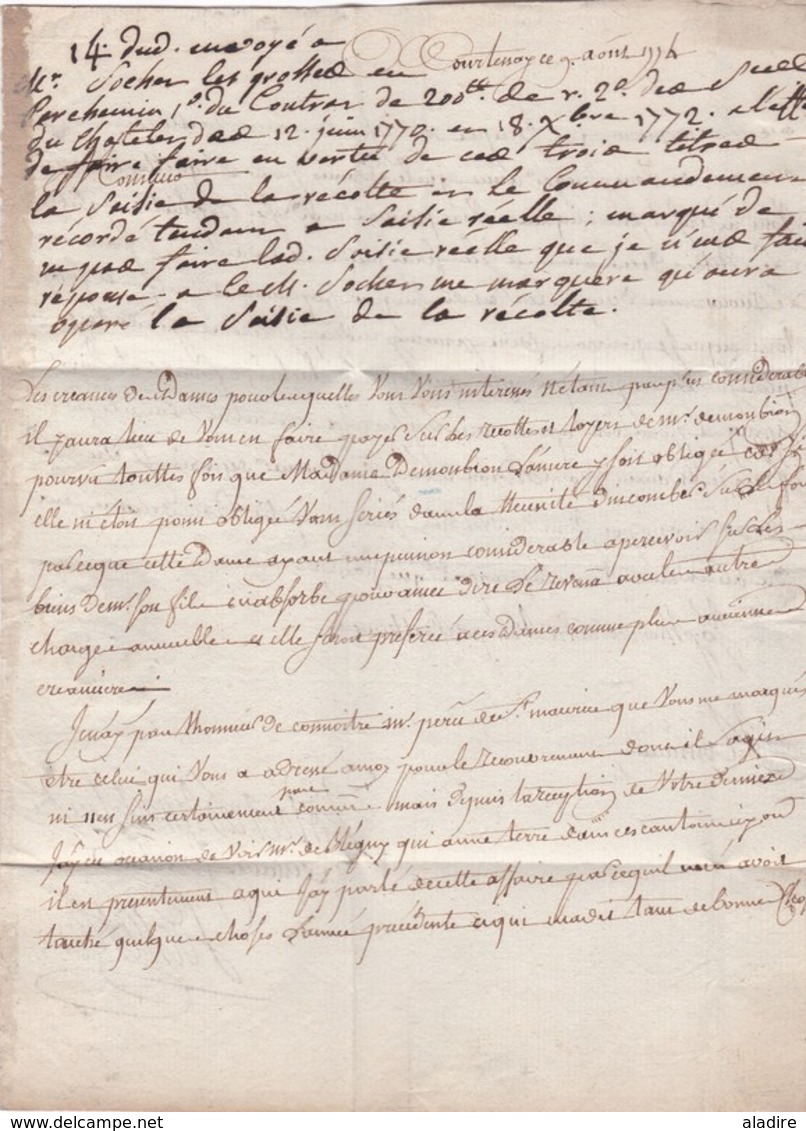 14. dud. envoyé a
Courtenay ce 9. aout 1774
Mr. Socher les grosses en
Parchemin, 1o. du Contrat de 200tt. de r. 2o. des
du Chatelet des 12. juin 1770. et 18. Xbre 1772. a l'effet
de faire faire en vertu de ces trois titres
la Saisie de la récolte et le Commandement
récordé tendant a Saisie réelle; marqué de
n pas faire lad. Saisie réelle que je n'aye fait
réponse a le M. Socher me marquera qu'aura
operé la Saisie de la récolte.
Les creances des Dames pour lesquelles Vous Vous interessés n'etant pas plus considerable
il y aura lieu de Vous en faire payer sur les recoltes et loyers de mr. demonbion
pourvu touttes fois que Madame Demonbion La mere y soit obligée car si
elle n'etoit point obligée Vous seriés dans la
parce que cette Dame ayant une pension considerable a percevoir sur les
biens de mr. son fils en absorbe pour ainsi dire le revenu avec les autres
charges annuelles et elle seroit preferée a ces Dames comme plus ancienne
creanciere
Je n'ay pas l'honneur de connoitre mr. de St. maurice que Vous me marqués
etre celui qui Vous a adressé a moy pour le recouvrement dont il s'agit
ni n'en suis certainement pas connu. mais depuis la reception de Votre derniere
J'ay eu occasion de voir mr. de Bligny qui a une terre dans ces cantons icy ou
il est presentement a qui J'ay parlé de cette affaire parce qu'il m'en avoit
touché quelque choses L'année précédente et qui m'a dit tant de bonnes